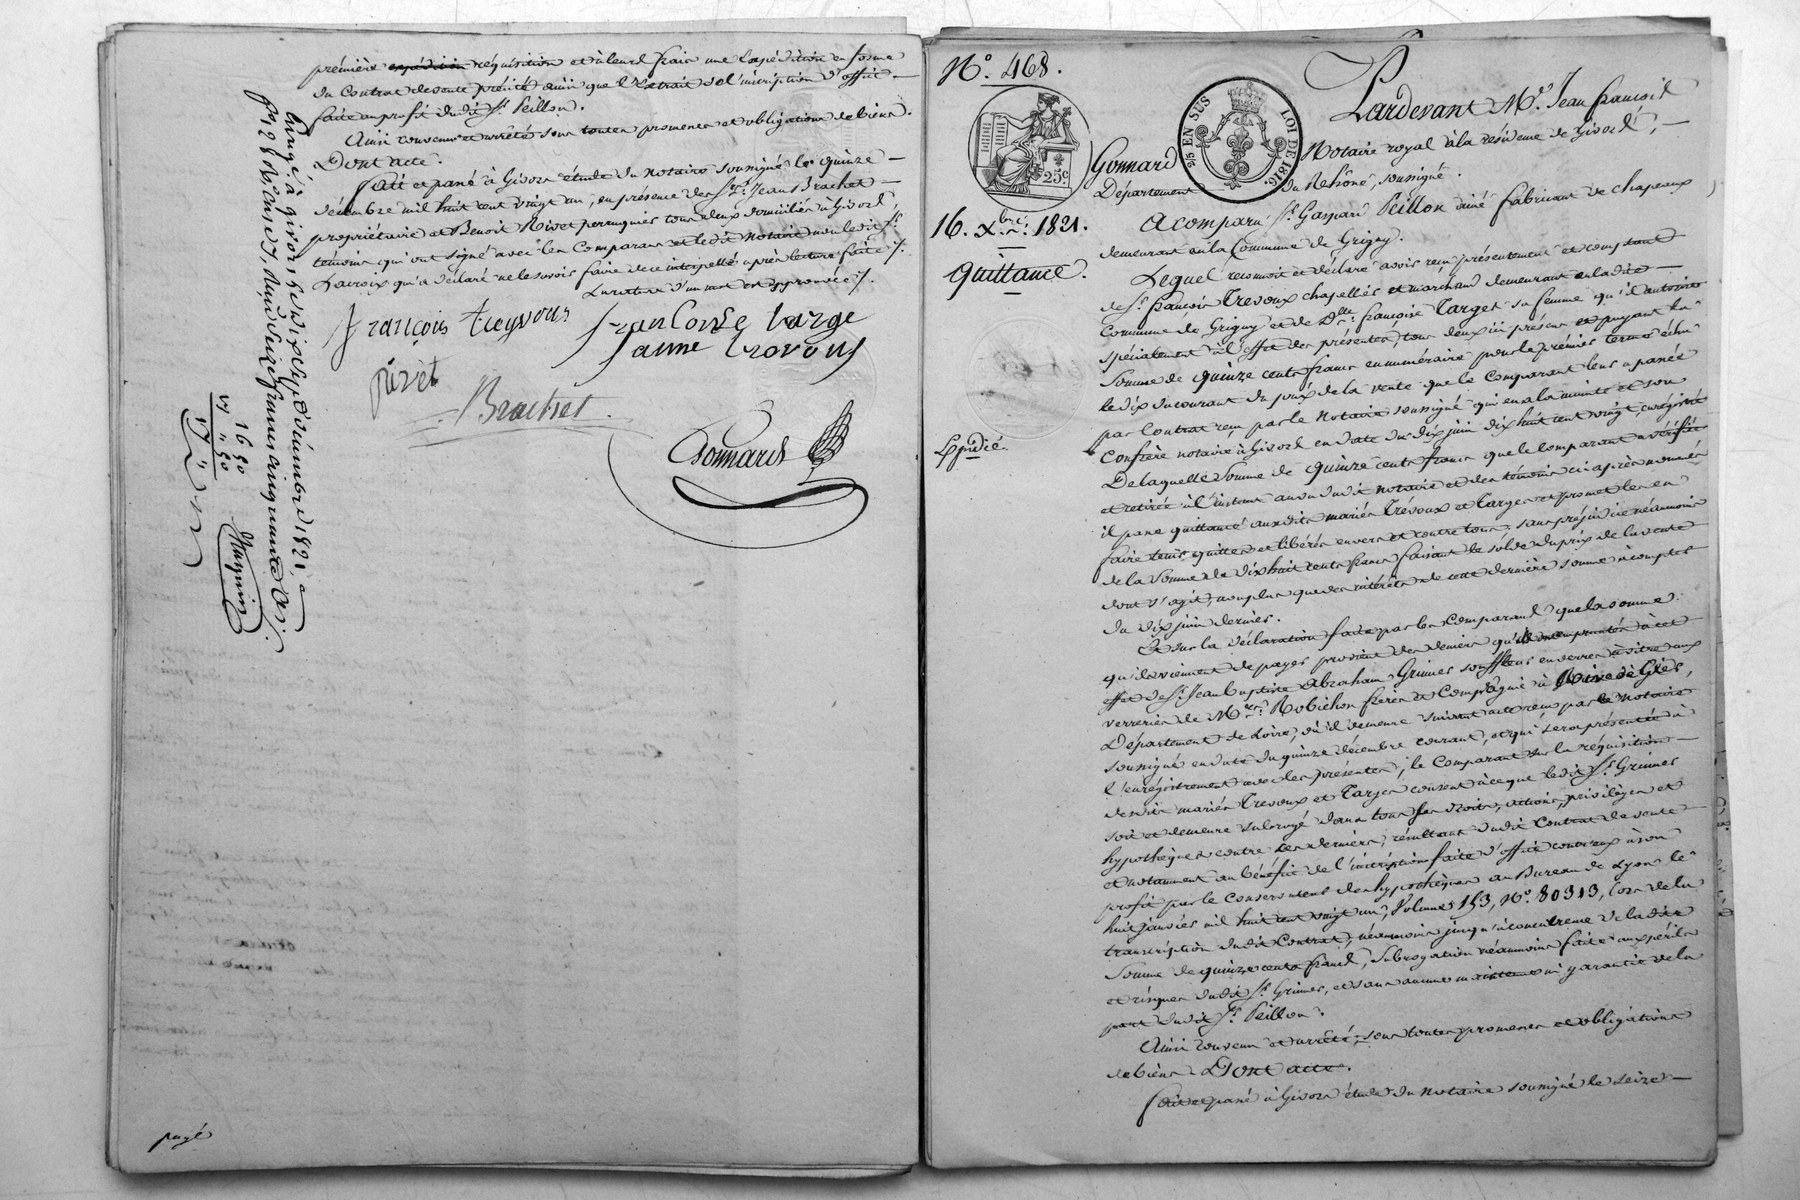 première expédition réquisition et à leurs frais une Expédition en forme
du Contrat de vente précité ainsi que l'Extrait de l'inscription d'office
faite au profit dudit Sr. Peillon.
Ainsi convenu et arrêté sous toutes promesses et obligations de biens.
Dont acte.
Fait et passé à Givors étude du Notaire soussigné le quinze
décembre mil huit cent vingt un, en présence des Srs. Jean Brachet
propriétaire et Benoit Rivet perruquier tous deux domiciliés à Givors,
témoins qui ont signé avec les Comparans et ledit Notaire non ledit Sr.
Lacroix qui a déclaré ne le savoir faire de ce interpellé après lecture faite /.
La rature d'un mot est approuvée /.
françois treyvoux
francoise targe
jaune trovous
rivet
Brachet
Gonnard
Enregé. à givors le dix sept décembre 1821
16 50
1 50
Mauguin
payé
No. 468.
25 EN SUS
LOI DE 1816
25c
16. Xbre. 1821.
Quittance.
Expédié.
Pardevant Me. Jean françois
Gonnard Notaire royal à la résidence de Givors,
Département du Rhône, soussigné.
A comparu Sr. Gaspard Peillon ainé fabricant de chapeaux
demeurant en la Commune de Grigny.
Lequel reconnoit et déclare avoir reçu présentement et comptant
de Sr. françois Trevoux chapellier et marchand demeurant en ladite
Commune de Grigny et de Dlle. françoise Targes sa femme qu'il autorise
spécialement à l'effet des présentes, tous deux ici présens et payant la
Somme de quinze cents francs en numéraire pour le premier terme échu
le dix du courant du prix de la vente que le Comparant leur a passée
par Contrat reçu par le Notaire soussigné qui en a la minute et son
Confrère notaire à Givors en date du dix juin dix huit cent vingt, enregistré
De laquelle Somme de quinze cents francs que le comparant a vérifiée
et retirée à l'instant au vu dudit notaire et des témoins ci après nommés
il passe quittance auxdits mariés Trévoux et Targes et promet les en
faire tenir quittes et libérés envers et contre tous; sans préjudice néanmoins
de la Somme de dix huit cents francs faisant le solde du prix de la vente
dont s'agit, non plus que des intérêts de cette dernière somme à compter
du dix juin dernier.
Et sur la déclaration faite par les Comparans que la somme
qu'ils viennent de payer provient des deniers qu'ils ont empruntés à cet
effet de Sr. Jean baptiste Abraham Grimer souffleur en verres à vitre aux
verreries de Mrs. Robichon frères et Compagnie à Rive de Gier,
Département de Loire, où il demeure suivant acte reçu par le Notaire
soussigné en date du quinze décembre courant, et qui sera présentée à
l'enrégistrement avec les présentes; le Comparant sur la réquisition
desdits mariés Trevoux et Targes consent à ce que ledit Sr. Grimer
soit et demeure subrogé dans tous ses droits, actions, privilèges et
hypothèques contre ces derniers, résultans dudit Contrat de vente
et notamment au bénéfice de l'inscription faite d'office contr'eux à son
profit par le Conservateur des hypothèques au Bureau de Lyon le
huit janvier mil huit cent vingt un, Volume 153, No. 80313, lors de la
transcription dudit Contrat, néanmoins jusqu'à concurrence de ladite
Somme de quinze cents francs, Subrogation néanmoins faite aux périls
et risques dudit Sr. Grimer, et sans aucune maintenue ni garantie de la
part dudit Sr. Peillon.
Ainsi convenu et arrêté; sous toutes promesses et obligations
de biens Dont acte.
fait et passé à Givors étude du Notaire soussigné le seize